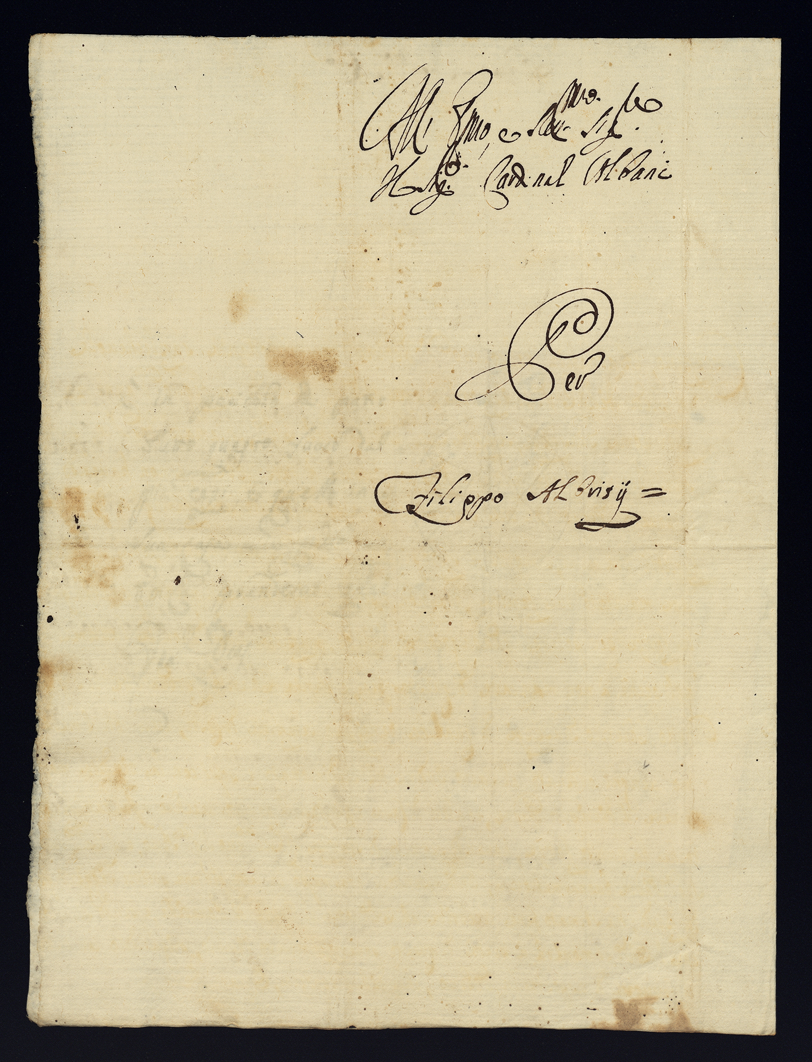 All Emo, e Rev.mo Sig.re
Il Sig.r Cardinal Albani
Per
Filippo Albrisij =